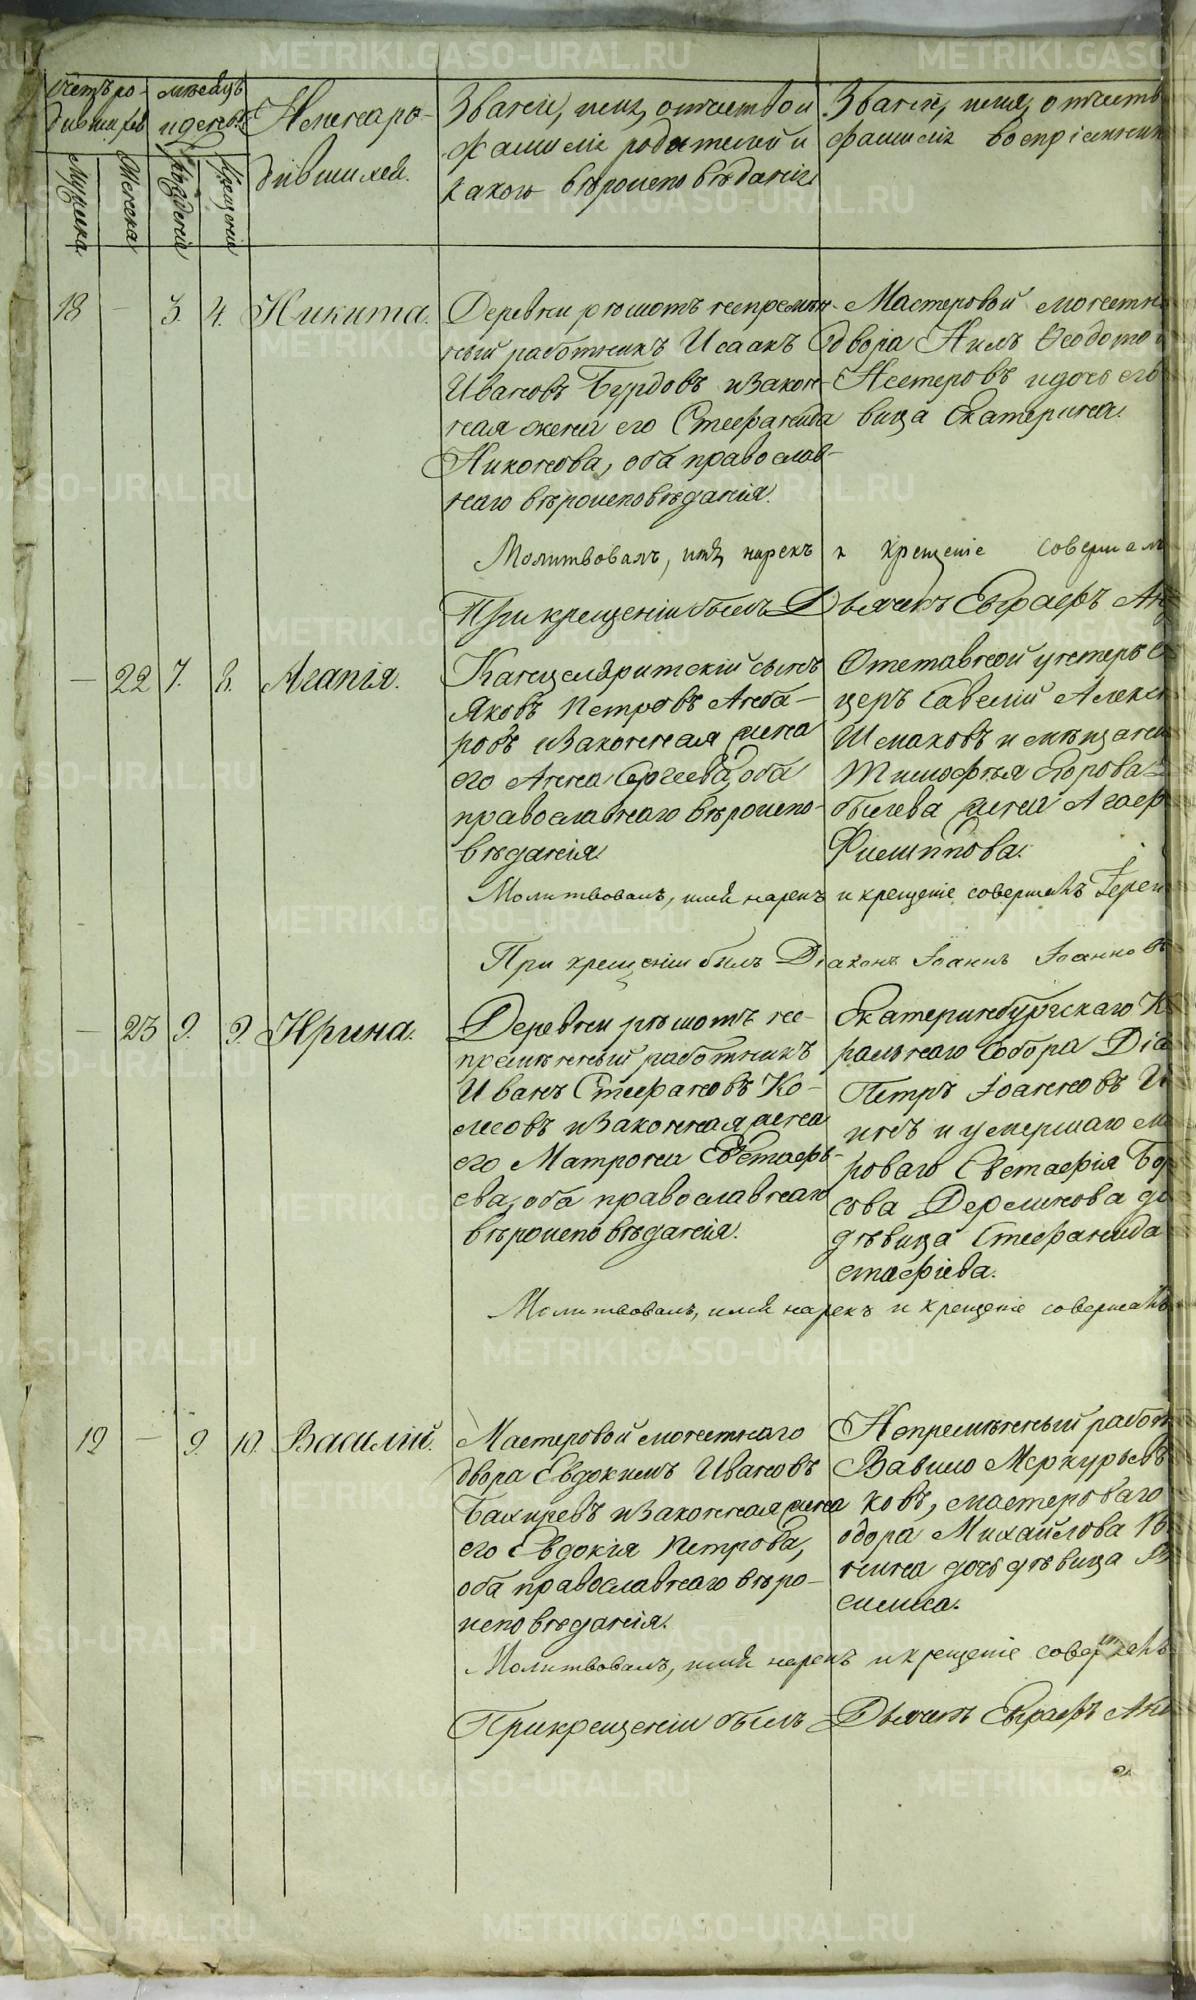 Счетъ ро-
дившихся
мѣсяцъ
и день
Мужеска
Женска
Рожденія
Крещенія
Имена ро-
дившихся.
Званіе, имя, отчество и
фамилія родителей и
какого вѣроисповѣданія
Званіе, имя, отчеств
фамилія воспріемник
18 — 3. 4. Никита.
Деревни рѣшотъ непремѣн-
ный работникъ Исаакъ
Ивановъ Бурдовъ и закон-
ная жена его Стефанида
Никонова, оба православ-
наго вѣроисповѣданія.
Мастеровой монетна
двора Нилъ Ѳеодото
Нестеровъ и дочь его
вица Екатерина.
Молитвовалъ, имя нарекъ и крещеніе совершал
При крещеніи былъ Дьячекъ Евграфъ Ан
— 22 7. 8. Агапія.
Канцеляритскій сынъ
Яковъ Петровъ Анба-
ровъ и законная жена
его Анна Сергеева, оба
православнаго вѣроиспо-
вѣданія.
Отставной унтеръ о
церъ Савелій Алекс
Шмаковъ и мѣщанин
Тимофѣя Егорова
былева жена Агаф
Филиппова.
Молитвовалъ, имя нарекъ и крещеніе совершалъ Іерей
При крещеніи былъ Діаконъ Іоаннъ Іоаннов
— 23 9. 9. Ирина.
Деревни рѣшотъ не-
премѣнный работникъ
Иванъ Стефановъ Ко-
лесовъ и законная жена
его Матрона Евстафь-
ева, оба православнаго
вѣроисповѣданія.
Екатеринбургскаго К
ральнаго Собора Діа
Петръ Іоанновъ И
инъ и умершаго м
роваго Евстафія Бор
сова Дерминова до
дѣвица Стефанида
стафіева.
Молитвовалъ, имя нарекъ и крещеніе совершалъ
19 — 9. 10. Василій.
Мастеровой монетнаго
двора Евдокимъ Ивановъ
Бахиревъ и законная жена
его Евдокія Петрова,
оба православнаго вѣро-
исповѣданія.
Непремѣнный работ
Вавило Меркурьевъ
ковъ, мастероваго
одора Михайлова
нина дочь дѣвица В
силиса.
Молитвовалъ, имя нарекъ и крещеніе совершалъ
При крещеніи былъ Дьячекъ Евграфъ Ан
METRIKI.GASO-URAL.RU